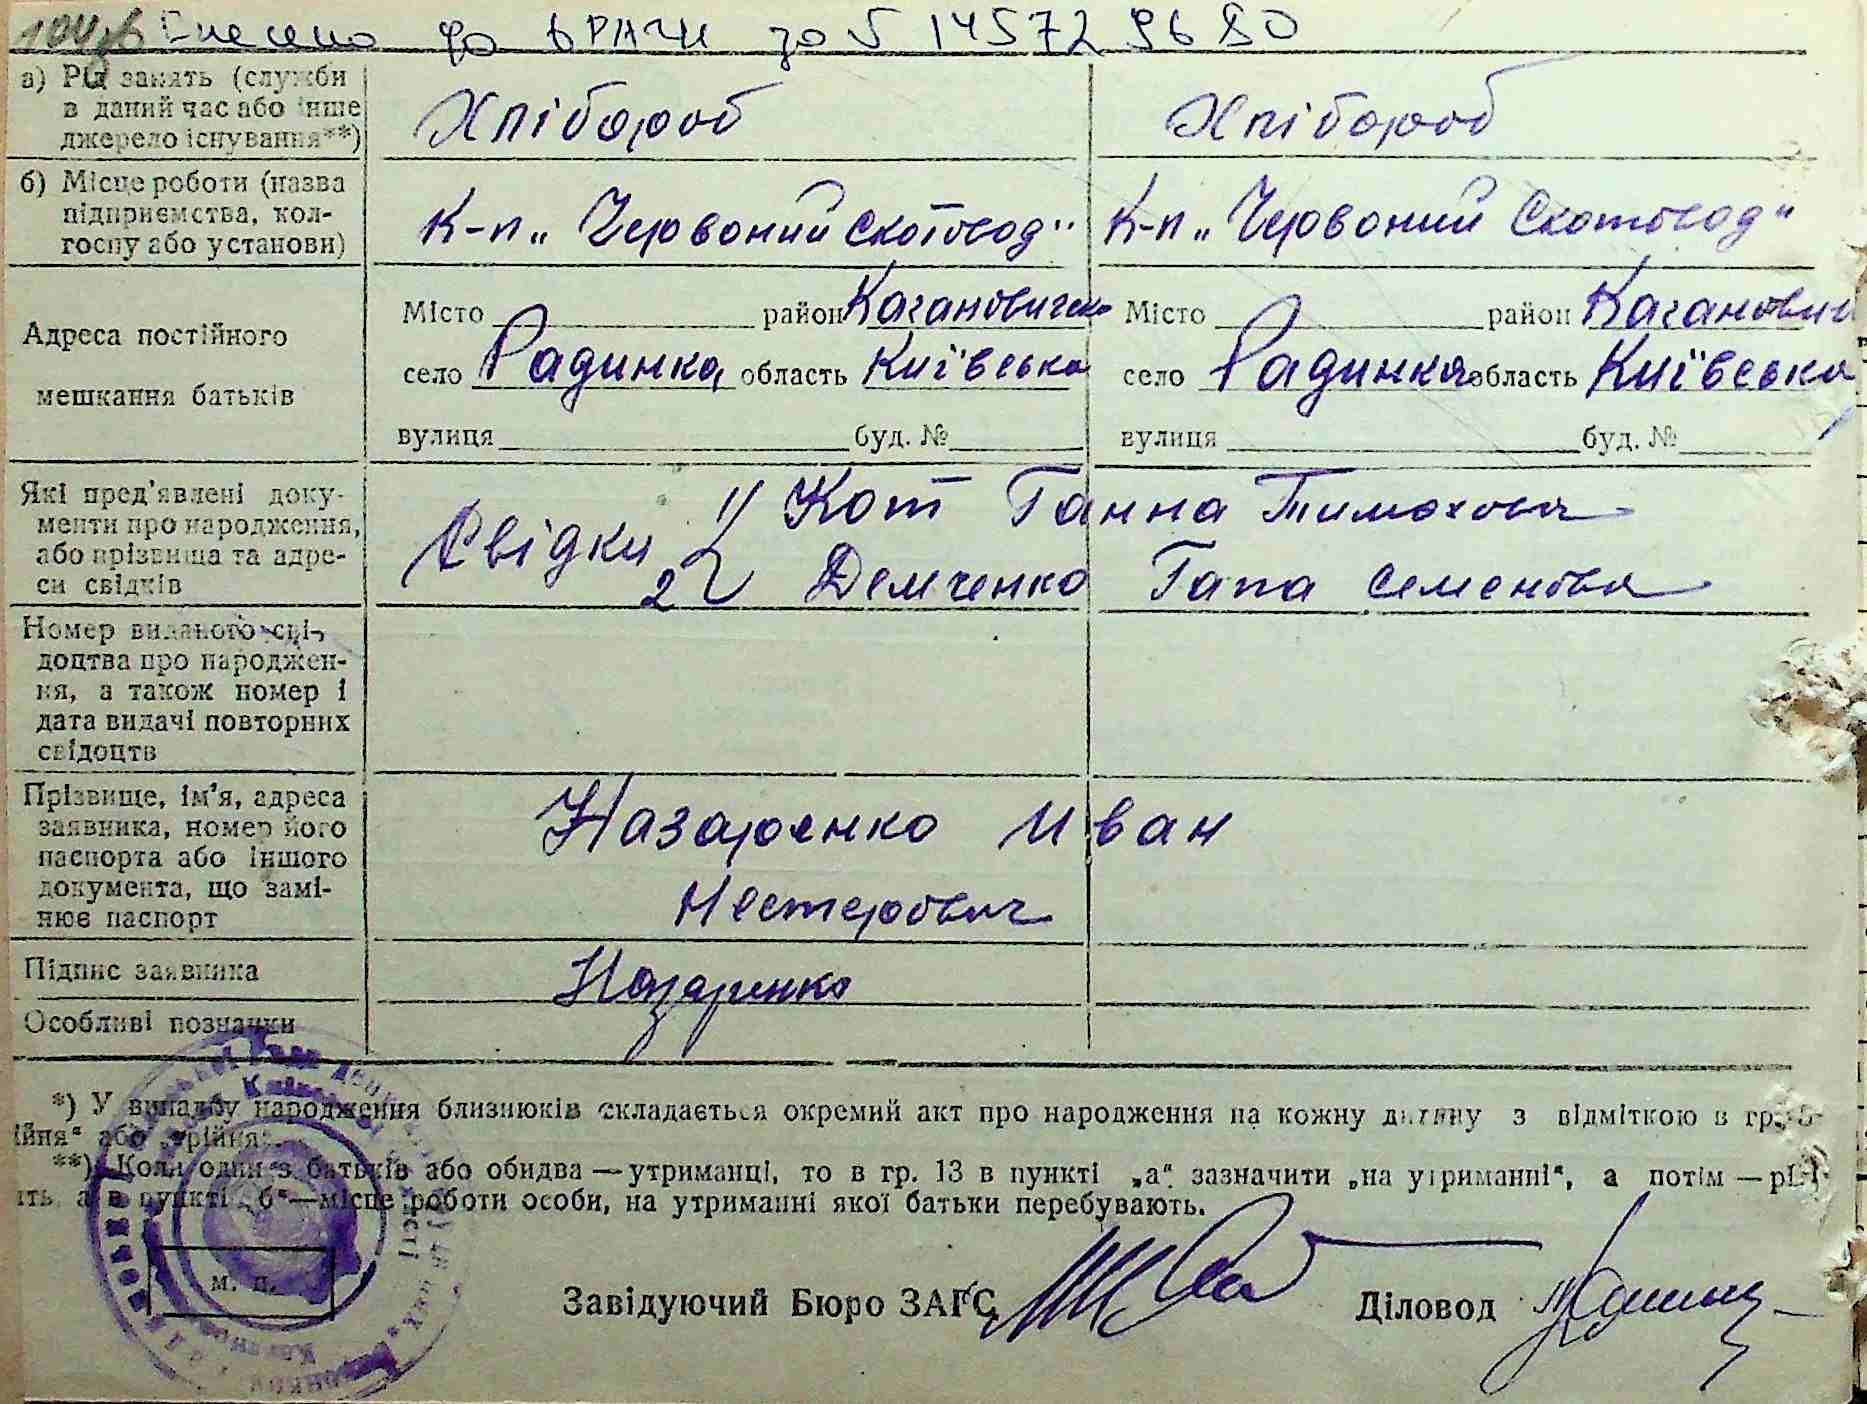 Внесено до ДРАЦС за № 145729680
а) Рід занять (служби в даний час або інше джерело існування**)
Хлібороб Хлібороб
б) Місце роботи (назва підприємства, колгоспу або установи)
К-п „Червоний Скотовод" К-п „Червоний Скотовод"
Адреса постійного мешкання батьків
Місто район Кагановичсько Місто район Каганович
село Радинка область Київська село Радинка область Київська
вулиця буд. № вулиця буд. №
Які пред'явлені документи про народження, або прізвища та адреси свідків
Свідки 1/ Кот Ганна Тимохова
2/ Демченко Гапа Семенова
Номер виданого свідоцтва про народження, а також номер і дата видачі повторних свідоцтв
Прізвище, ім'я, адреса заявника, номер його паспорта або іншого документа, що замінює паспорт
Назаренко Иван
Нестерович
Підпис заявника
Назаренко
Особливі позначки
*) У випадку народження близнюків складається окремий акт про народження на кожну дитину з відміткою в гр. 5
ійня" або „трійня".
**) Коли один з батьків або обидва — утриманці, то в гр. 13 в пункті „а" зазначити „на утриманні", а потім — рі
ть, а в пункті „б"—місце роботи особи, на утриманні якої батьки перебувають.
м. п.
Завідуючий Бюро ЗАГС Діловод